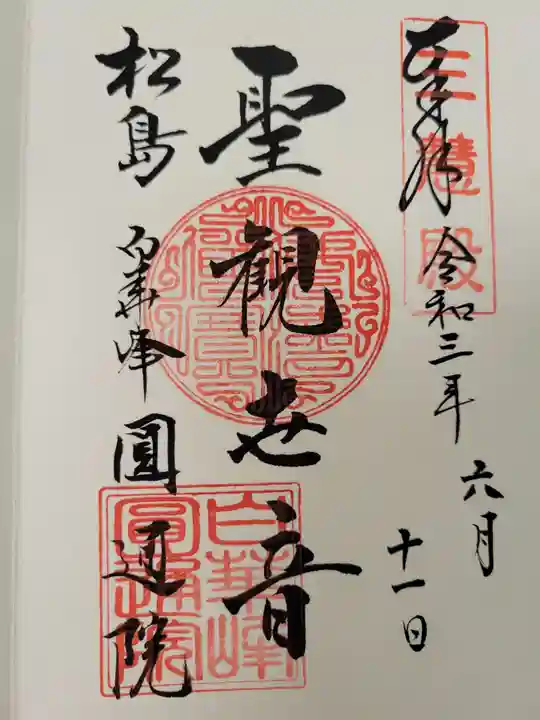 奉拝
三慧殿
令和三年
六月
十一日
聖観世音
松島
白華峰
圓通院
白華峰
圓通院